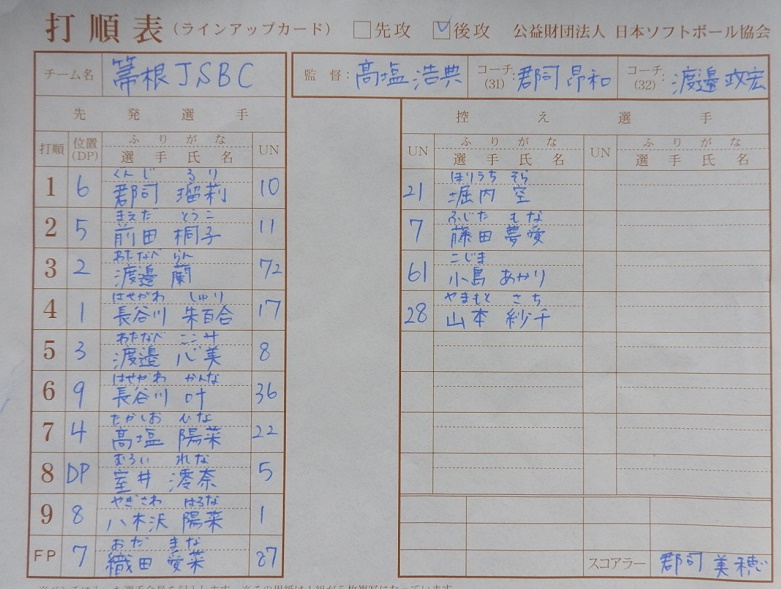 打順表 (ラインアップカード) □先攻 ☑後攻 公益財団法人 日本ソフトボール協会
チーム名 箒根JSBC 監督: 髙塩 浩典 コーチ(31): 郡司 昂和 コーチ(32): 渡邉 政宏
先発選手
控え選手
打順 位置(DP) ふりがな 選手氏名 UN
UN ふりがな 選手氏名 UN ふりがな 選手氏名
ぐんじ るり
1 6 郡司 瑠莉 10
まえだ とうこ
2 5 前田 桐子 11
わたなべ らん
3 2 渡邉 蘭 72
はせがわ しゅり
4 1 長谷川 朱百合 17
わたなべ ここみ
5 3 渡邉 心美 8
はせがわ かんな
6 9 長谷川 叶 36
たかしお ひな
7 4 髙塩 陽菜 22
むろい れな
8 DP 室井 澪奈 5
やぎさわ はるな
9 8 八木沢 陽菜 1
おだ まな
FP 7 織田 愛菜 87
ほりうち そら
21 堀内 空
ふじた もな
7 藤田 夢愛
こじま
61 小島 あかり
やまもと さち
28 山本 紗千
スコアラー 郡司 美穂